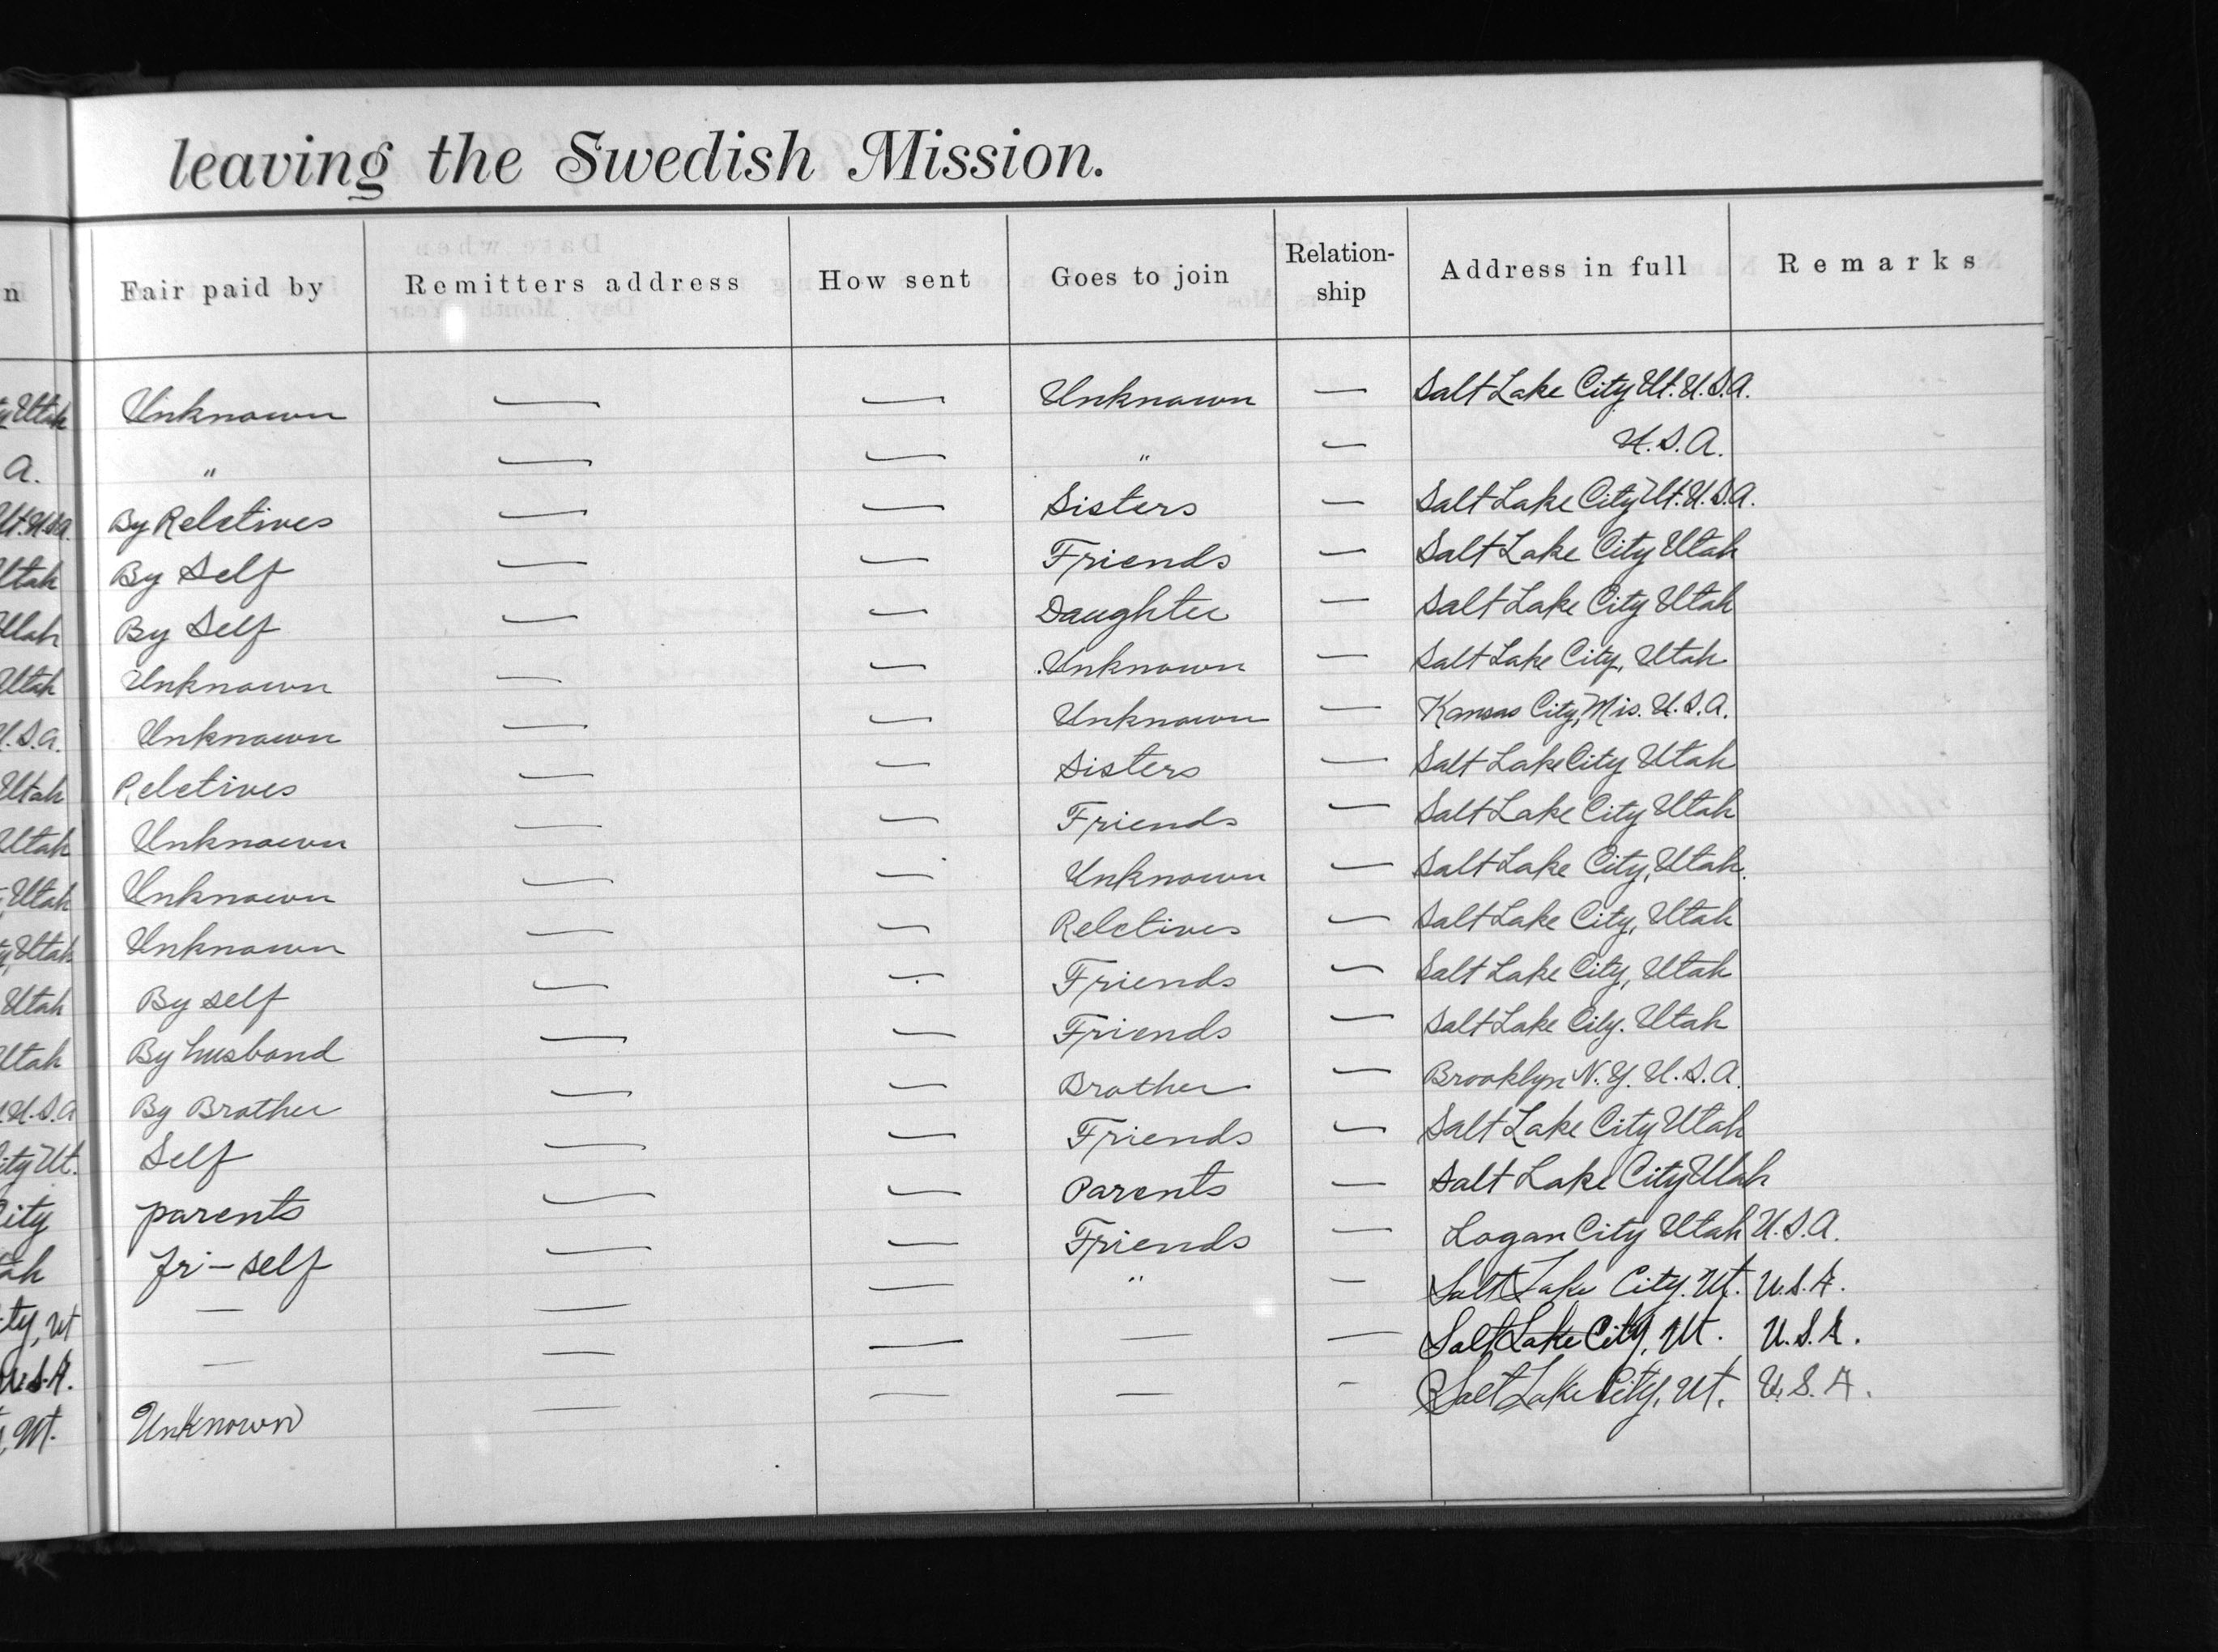 leaving the Swedish Mission.
n Fair paid by Remitters address How sent Goes to join Relation-ship Address in full Remarks
Utah Unknown — — Unknown — Salt Lake City Ut. U.S.A.
A. " — — " — U.S.A.
Ut. U.S.A. By Reletives — — Sisters — Salt Lake City Ut. U.S.A.
Utah By Self — — Friends — Salt Lake City Utah
Utah By Self — — Daughter — Salt Lake City Utah
Utah Unknown — — Unknown — Salt Lake City, Utah
U.S.A. Unknown — — Unknown — Kansas City, Mis. U.S.A.
Utah Reletives — — Sisters — Salt Lake City Utah
Utah Unknown — — Friends — Salt Lake City Utah
Utah Unknown — — Unknown — Salt Lake City, Utah.
y, Utah Unknown — — Reletives — Salt Lake City, Utah
Utah By self — — Friends — Salt Lake City, Utah
Utah By husband — — Friends — Salt Lake City. Utah
U.S.A By Brother — — Brother — Brooklyn N.Y. U.S.A.
ity Ut. Self — — Friends — Salt Lake City Utah
City parents — — Parents — Salt Lake City Utah
ah fri-self — — Friends — Logan City Utah U.S.A.
ty, Ut — — — " — Salt Lake City. Ut. U.S.A.
U.S.A. — — — — — Salt Lake City, Ut. U.S.A.
, Ut. Unknown — — — — Salt Lake City, Ut. U.S.A.